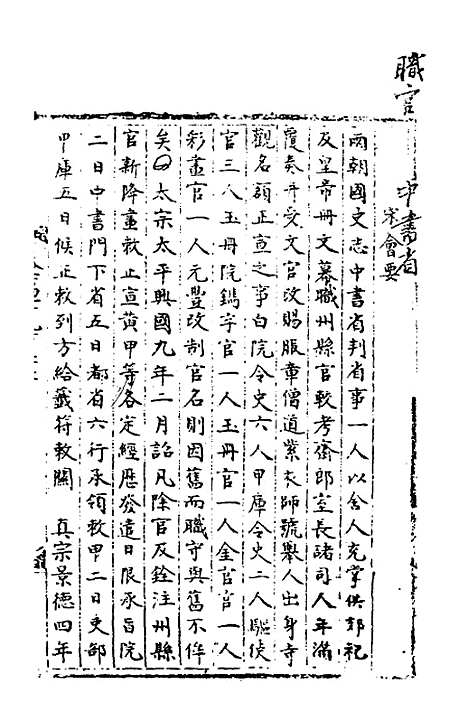 職官
中書省
宋會要
兩朝國史志中書省判省事一人以舍人充掌供郊祀
及皇帝冊文幕職州縣官較考齋郎室長諸司人年滿
覆奏幷受文官改賜服章僧道紫衣師號舉人出身寺
觀名額正宣之事白院令史六人甲庫令史二人驅使
官三人玉冊院鐫字官一人玉冊官一人金官官一人
彩畫官一人元豐改制官名則因舊而職守與舊不侔
矣 太宗太平興國九年二月詔凡除官及銓注州縣
官新降畫敕止宣黃甲等各定經歷發遣日限承旨院
二日中書門下省五日都省六行承領敕甲二日吏部
甲庫五日候正敕到方給籤符敕關 真宗景德四年